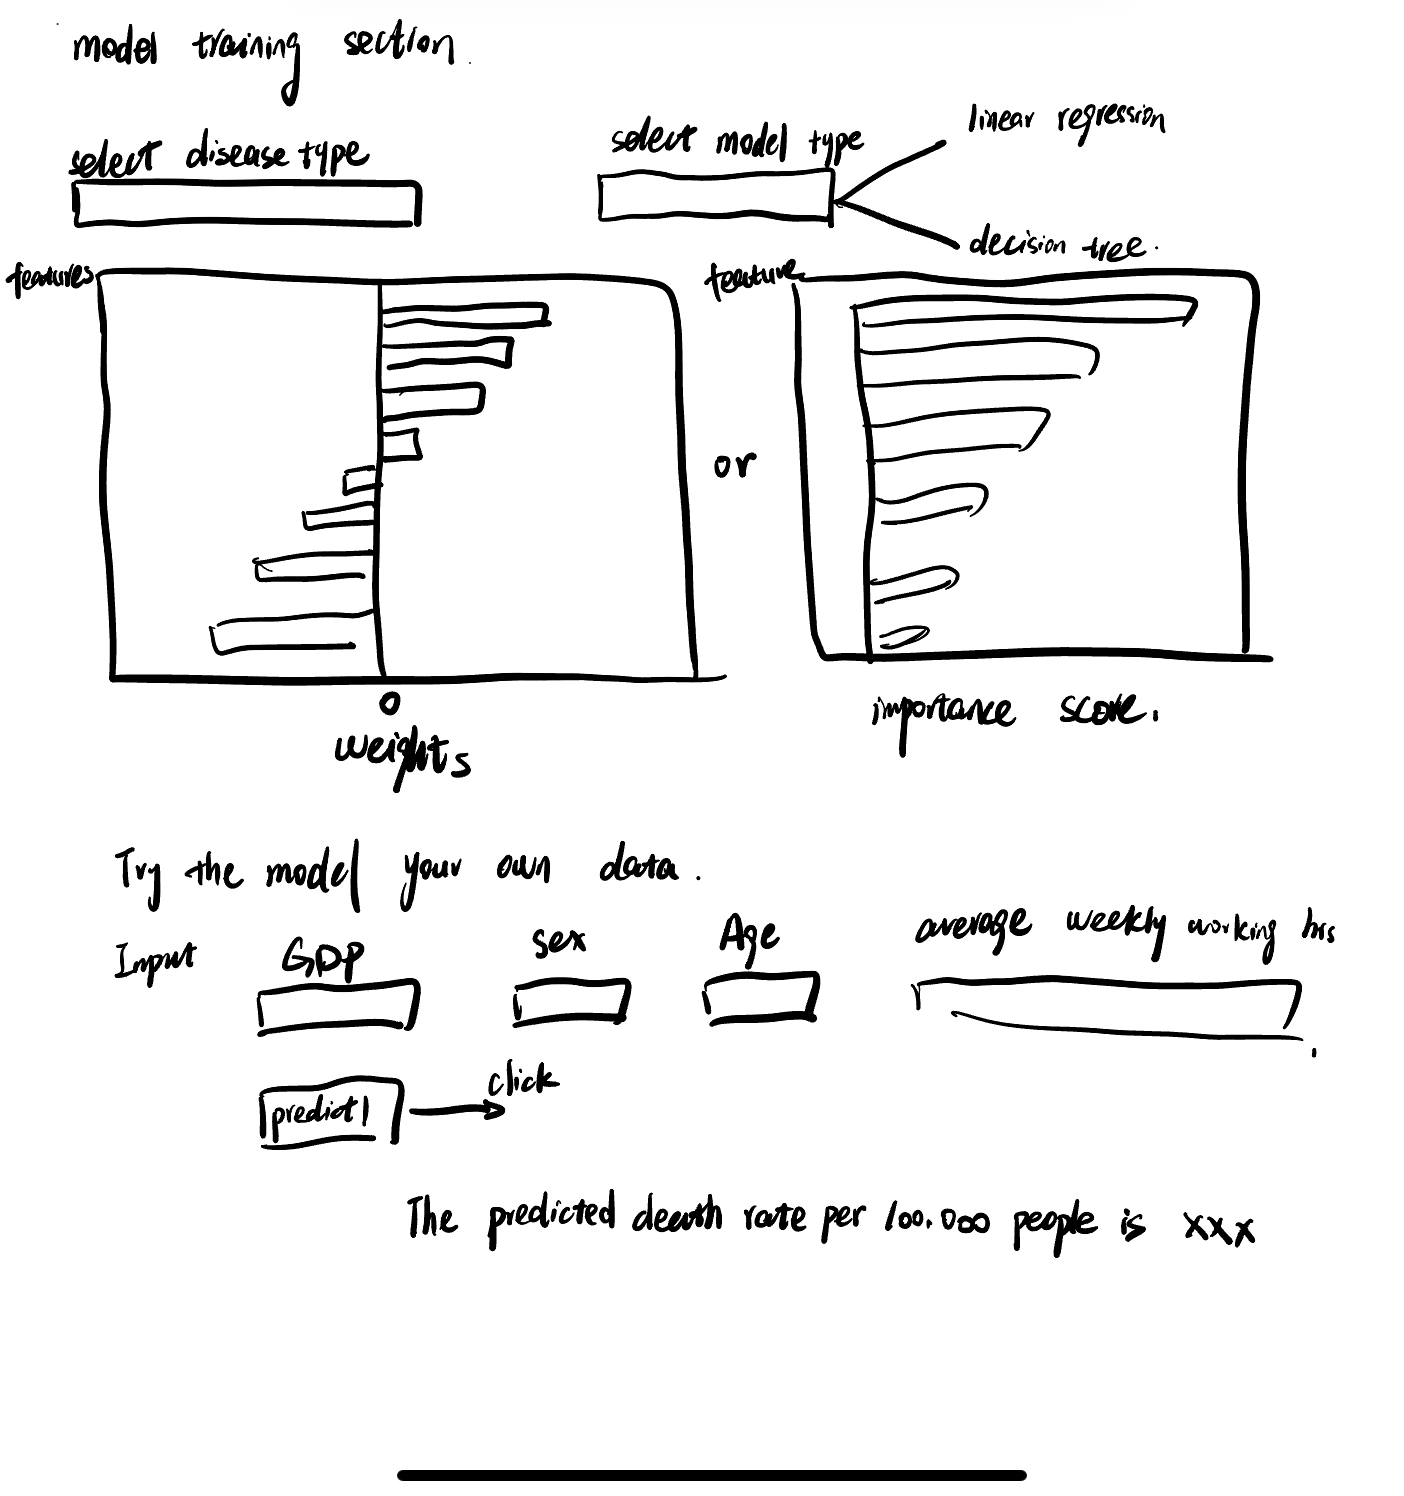 model training section.
select disease type
select model type
linear regression
decision tree.
features
feature
or
0
weights
importance score.
Try the model your own data.
Input GDP sex Age average weekly working hrs
predict
click
The predicted death rate per 100.000 people is xxx